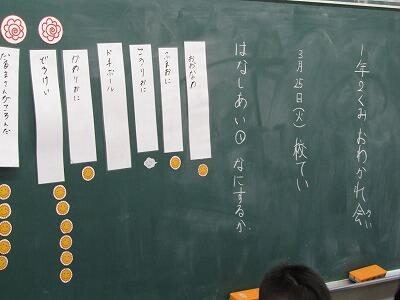 1年2くみ おわかれ会
かい
3月25日(火) 校てい
はなしあい① なにするか
おおなわ
ふえおに
こおりおに
ドッチボール
かわりおに
どろけい
だるまさんがころんだ